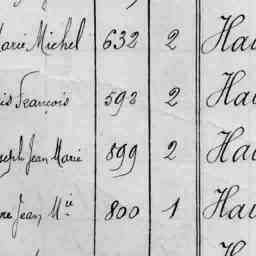 Marie Michel 632 2 Hau
is François 592 2 Hau
seph Jean Marie 899 2 Hau
Jean M<sup>ie</sup> 800 1 Hau